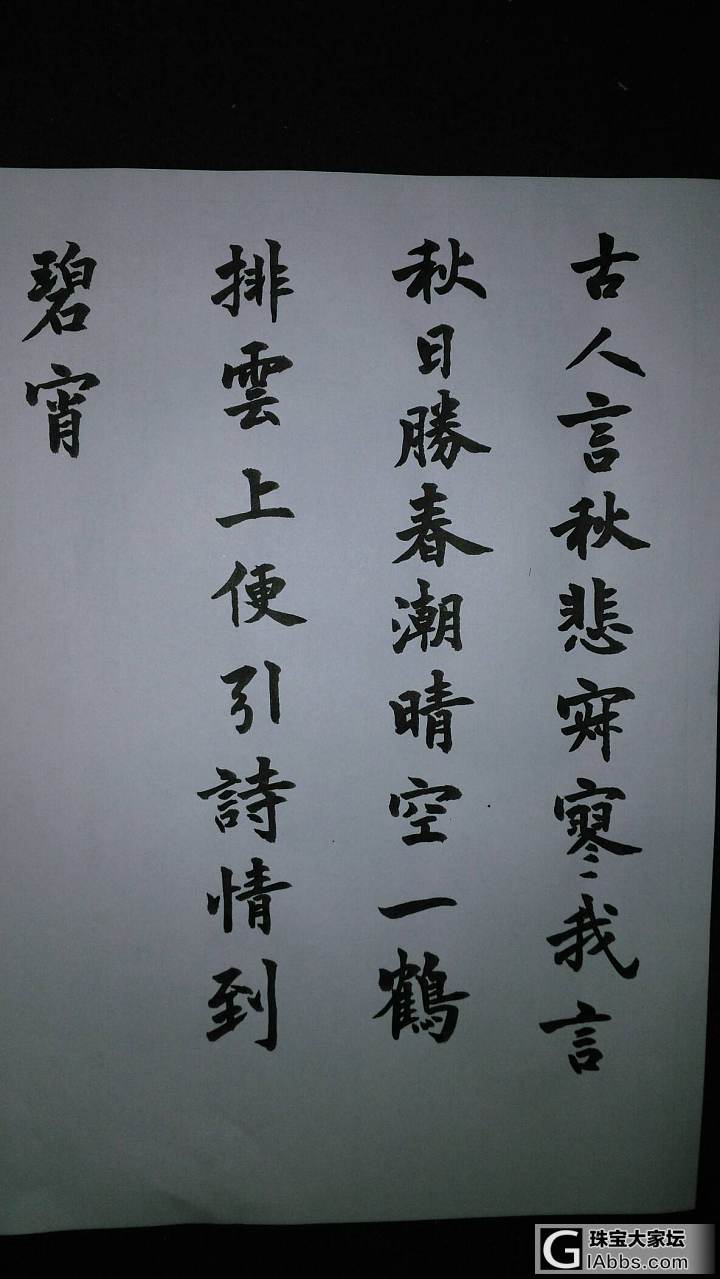 古人言秋悲寂寥我言
秋日勝春潮晴空一鶴
排雲上便引詩情到
碧宵
G 珠宝大家坛
GIAbbs.com